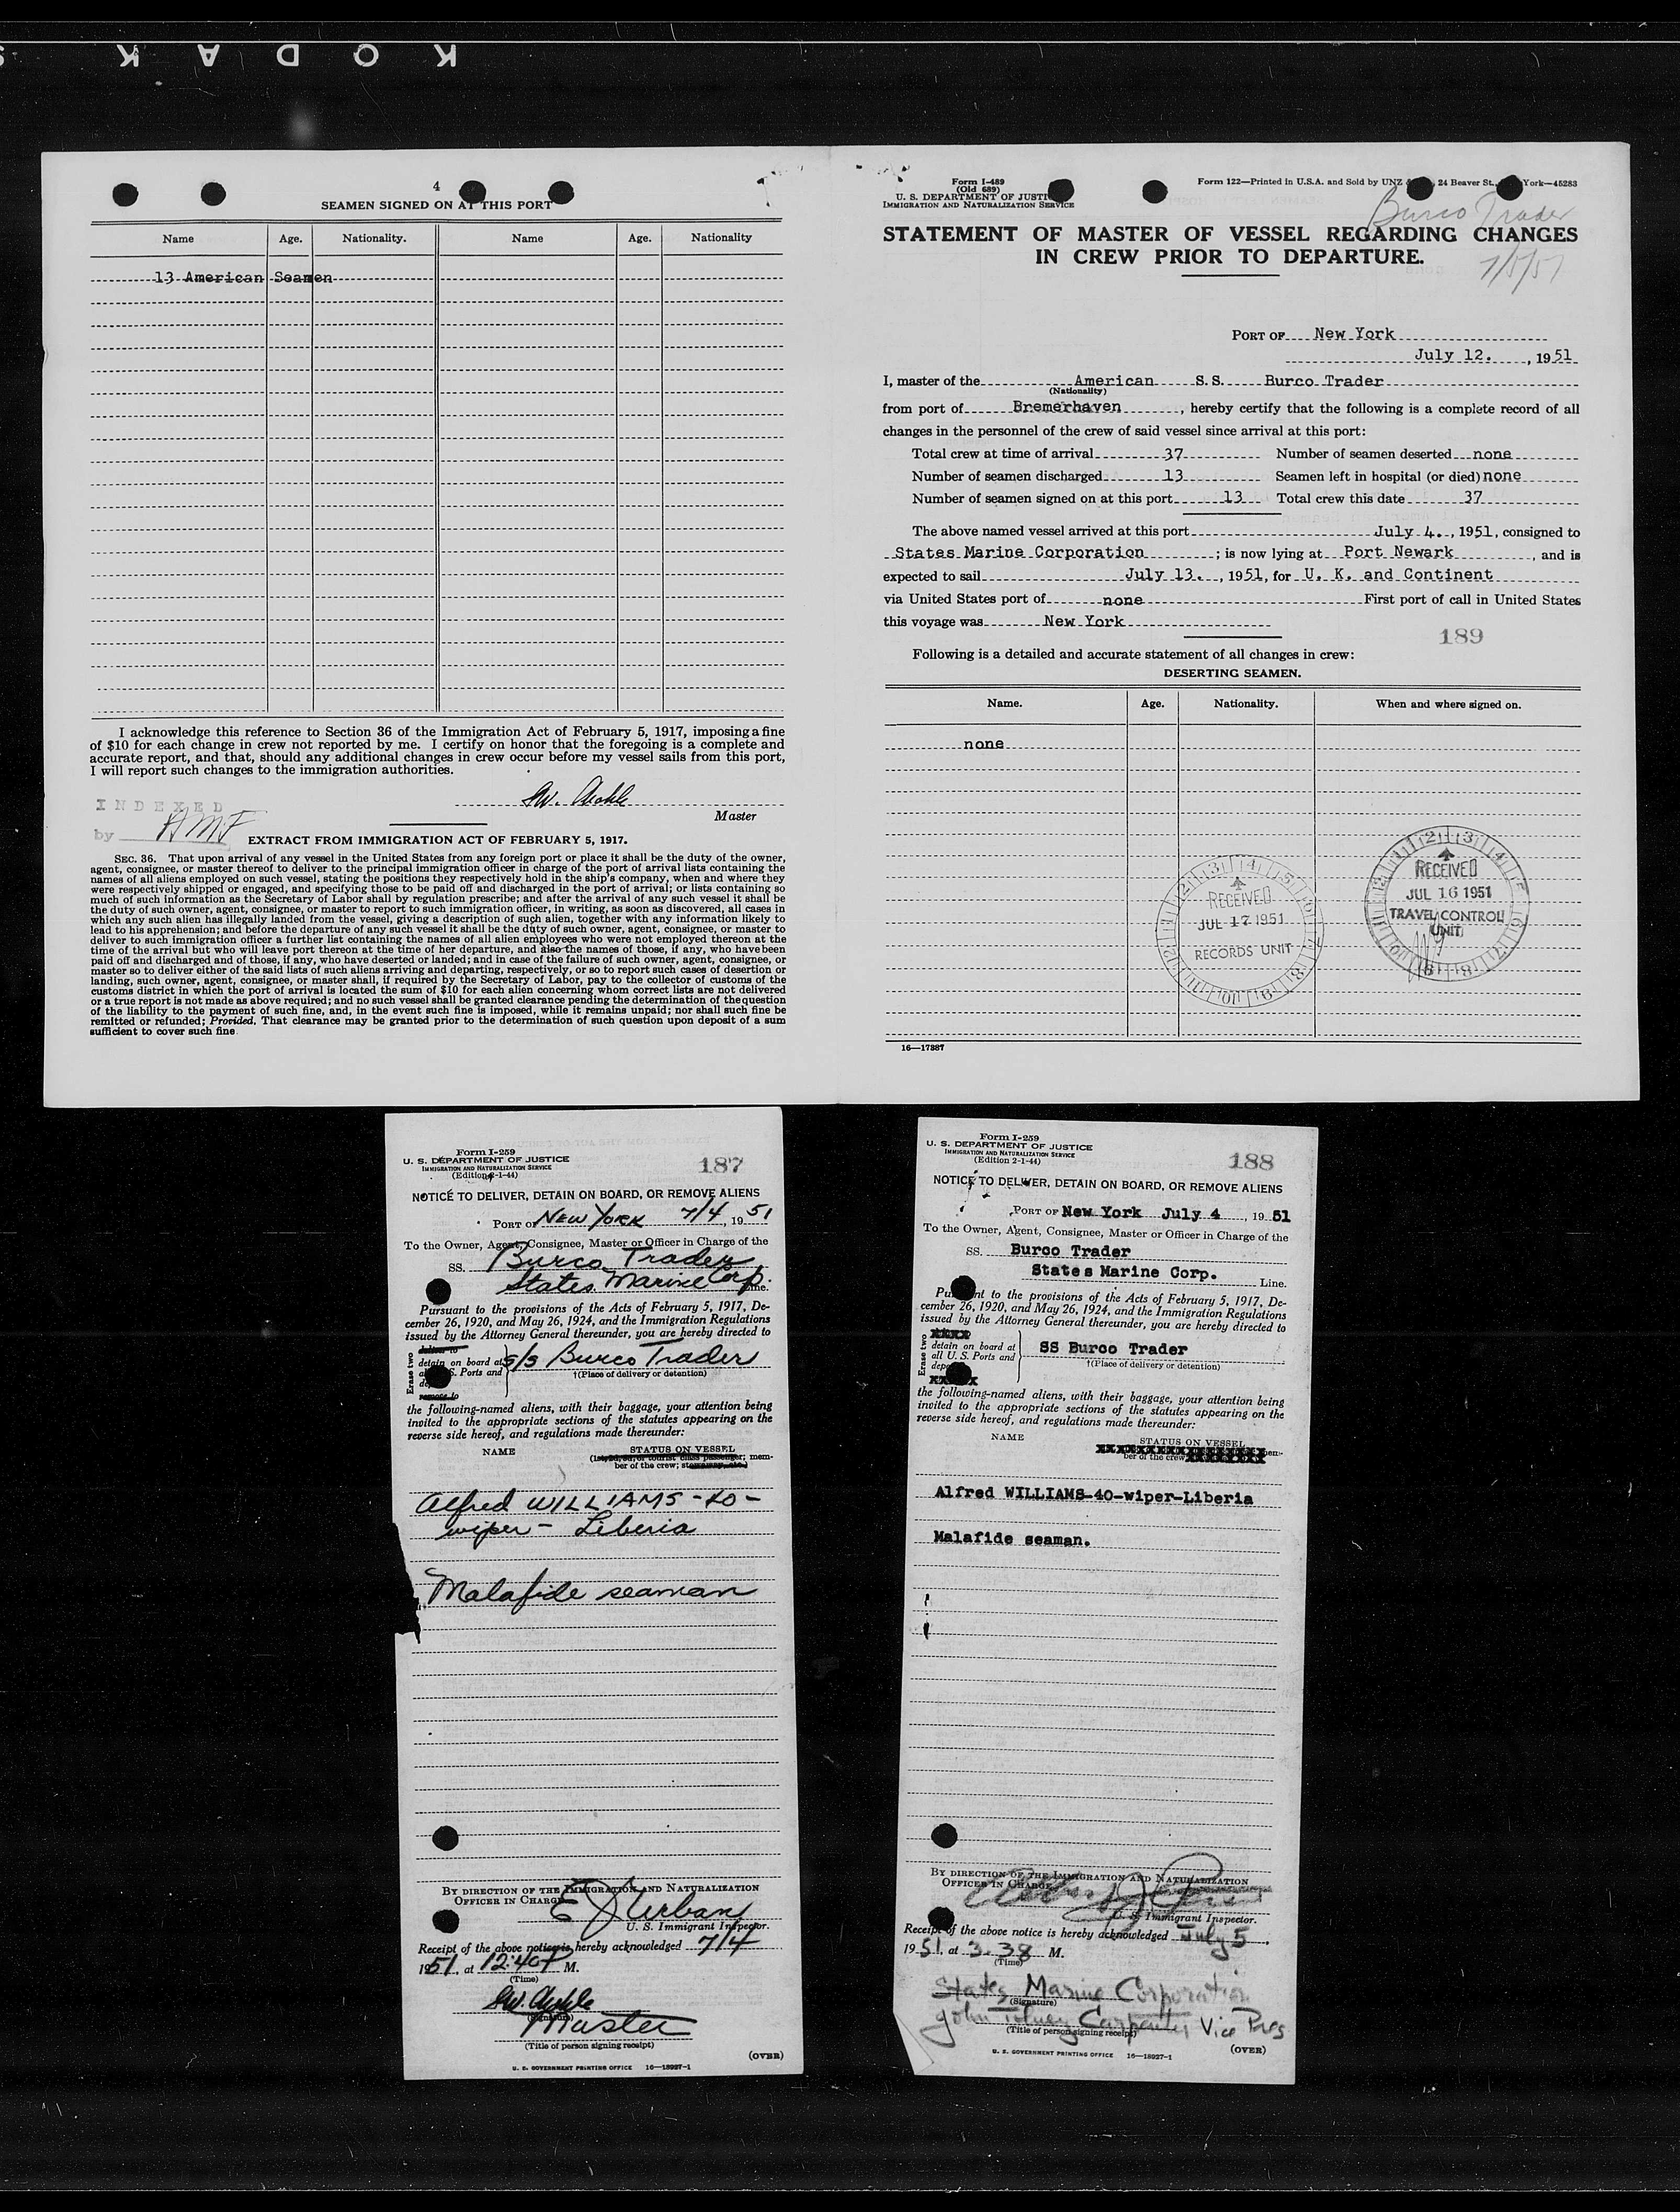 KODAK S
4
SEAMEN SIGNED ON AT THIS PORT
Name Age. Nationality. Name Age. Nationality
13 American Seamen
I acknowledge this reference to Section 36 of the Immigration Act of February 5, 1917, imposing a fine
of $10 for each change in crew not reported by me. I certify on honor that the foregoing is a complete and
accurate report, and that, should any additional changes in crew occur before my vessel sails from this port,
I will report such changes to the immigration authorities.
Master
INDEXED
by AMF
EXTRACT FROM IMMIGRATION ACT OF FEBRUARY 5, 1917.
SEC. 36. That upon arrival of any vessel in the United States from any foreign port or place it shall be the duty of the owner,
agent, consignee, or master thereof to deliver to the principal immigration officer in charge of the port of arrival lists containing the
names of all aliens employed on such vessel, stating the positions they respectively hold in the ship's company, when and where they
were respectively shipped or engaged, and specifying those to be paid off and discharged in the port of arrival; or lists containing so
much of such information as the Secretary of Labor shall by regulation prescribe; and after the arrival of any such vessel it shall be
the duty of such owner, agent, consignee, or master to report to such immigration officer, in writing, as soon as discovered, all cases in
which any such alien has illegally landed from the vessel, giving a description of such alien, together with any information likely to
lead to his apprehension; and before the departure of any such vessel it shall be the duty of such owner, agent, consignee, or master to
deliver to such immigration officer a further list containing the names of all alien employees who were not employed thereon at the
time of the arrival but who will leave port thereon at the time of her departure, and also the names of those, if any, who have been
paid off and discharged and of those, if any, who have deserted or landed; and in case of the failure of such owner, agent, consignee, or
master so to deliver either of the said lists of such aliens arriving and departing, respectively, or so to report such cases of desertion or
landing, such owner, agent, consignee, or master shall, if required by the Secretary of Labor, pay to the collector of customs of the
customs district in which the port of arrival is located the sum of $10 for each alien concerning whom correct lists are not delivered
or a true report is not made as above required; and no such vessel shall be granted clearance pending the determination of the question
of the liability to the payment of such fine, and, in the event such fine is imposed, while it remains unpaid; nor shall such fine be
remitted or refunded; Provided, That clearance may be granted prior to the determination of such question upon deposit of a sum
sufficient to cover such fine
Form I-489
(Old 689)
U. S. DEPARTMENT OF JUSTI
IMMIGRATION AND NATURALIZATION SERVICE
Form 122—Printed in U.S.A. and Sold by UNZ 24 Beaver St., York—45283
Burco Trader
7/5/51
STATEMENT OF MASTER OF VESSEL REGARDING CHANGES
IN CREW PRIOR TO DEPARTURE.
PORT OF New York
July 12. , 1951
I, master of the American S.S. Burco Trader
(Nationality)
from port of Bremerhaven , hereby certify that the following is a complete record of all
changes in the personnel of the crew of said vessel since arrival at this port:
Total crew at time of arrival 37 Number of seamen deserted none
Number of seamen discharged 13 Seamen left in hospital (or died) none
Number of seamen signed on at this port 13 Total crew this date 37
The above named vessel arrived at this port July 4. , 1951, consigned to
States Marine Corporation ; is now lying at Port Newark , and is
expected to sail July 13. , 1951, for U. K. and Continent
via United States port of none First port of call in United States
this voyage was New York
189
Following is a detailed and accurate statement of all changes in crew:
DESERTING SEAMEN.
Name. Age. Nationality. When and where signed on.
none
RECEIVED
JUL 17 1951
RECORDS UNIT
RECEIVED
JUL 16 1951
TRAVEL CONTROL
UNIT
16—17387
Form I-259
U. S. DEPARTMENT OF JUSTICE
IMMIGRATION AND NATURALIZATION SERVICE
(Edition 2-1-44)
187
NOTICE TO DELIVER, DETAIN ON BOARD, OR REMOVE ALIENS
PORT OF New York 7/4, 1951
To the Owner, Agent, Consignee, Master or Officer in Charge of the
SS. Burco Trader
States Marine Corp. Line.
Pursuant to the provisions of the Acts of February 5, 1917, De-
cember 26, 1920, and May 26, 1924, and the Immigration Regulations
issued by the Attorney General thereunder, you are hereby directed to
Erase two
deliver to
detain on board at S/S Burco Trader
S. Ports and
†(Place of delivery or detention)
remove to
the following-named aliens, with their baggage, your attention being
invited to the appropriate sections of the statutes appearing on the
reverse side hereof, and regulations made thereunder:
NAME STATUS ON VESSEL
(1st, 2d, 3d, or tourist class passenger; mem-
ber of the crew; stowaway, etc.)
Alfred WILLIAMS - 40 -
wiper - Liberia
Malafide seaman
BY DIRECTION OF THE IMMIGRATION AND NATURALIZATION
OFFICER IN CHARGE
E J Urban
U. S. Immigrant Inspector.
Receipt of the above notice is hereby acknowledged 7/4
1951, at 12:40P M.
(Time)
(Signature)
Master
(Title of person signing receipt)
(OVER)
U. S. GOVERNMENT PRINTING OFFICE 16—18927-1
Form I-259
U. S. DEPARTMENT OF JUSTICE
IMMIGRATION AND NATURALIZATION SERVICE
(Edition 2-1-44)
188
NOTICE TO DELIVER, DETAIN ON BOARD, OR REMOVE ALIENS
PORT OF New York July 4 , 19 51
To the Owner, Agent, Consignee, Master or Officer in Charge of the
SS. Burco Trader
States Marine Corp. Line.
Pu nt to the provisions of the Acts of February 5, 1917, De-
cember 26, 1920, and May 26, 1924, and the Immigration Regulations
issued by the Attorney General thereunder, you are hereby directed to
Erase two
XXXX
detain on board at
all U. S. Ports and SS Burco Trader
†(Place of delivery or detention)
the following-named aliens, with their baggage, your attention being
invited to the appropriate sections of the statutes appearing on the
reverse side hereof, and regulations made thereunder:
NAME STATUS ON VESSEL
mem-
ber of the crew
Alfred WILLIAMS-40-wiper-Liberia
Malafide seaman.
BY DIRECTION OF THE IMMIGRATION AND NATURALIZATION
OFFICER IN CHARGE
U. S. Immigrant Inspector.
Receipt of the above notice is hereby acknowledged July 5
1951, at 3.38 M.
(Time)
States Marine Corporation
(Signature)
John Carpenter Vice Pres
(Title of person signing receipt)
U. S. GOVERNMENT PRINTING OFFICE 16—18927-1
(OVER)